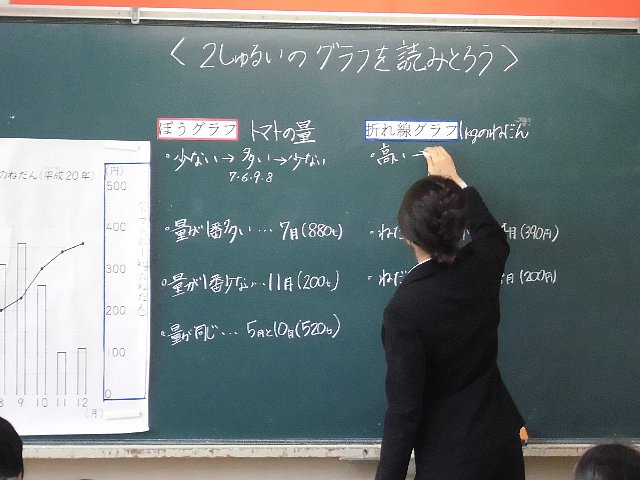 〈2しゅるいのグラフを読みとろう〉
ぼうグラフ トマトの量
・少ない→多い→少ない
7.6.9.8
・量が1番多い…7月(880t)
・量が1番少ない…11月(200t)
・量が同じ…5月と10月(520t)
折れ線グラフ 1kgのねだん
・高い→
・ねだ
月(390円)
・ねだ
月(200円)
のねだん(平成20年)
(円)
500
400
300
200
100
0
8 9 10 11 12
(月)